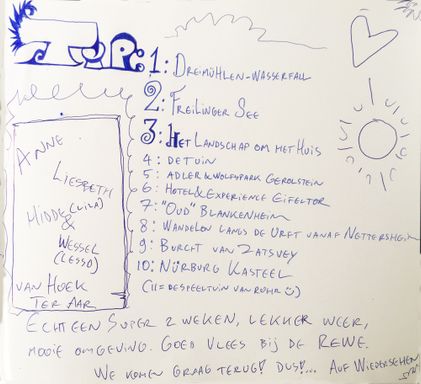 TOP:
1: DREIMÜHLEN-WASSERFALL
2: FREILINGER SEE
3: HET LANDSCHAP OM HET HUIS
4: DE TUIN
5: ADLER & WOLFSPARK GEROLSTEIN
6: HOTEL & EXPERIENCE EIFELTOR
7: "OUD" BLANKENHEIM
8: WANDELEN LANGS DE URFT VANAF NETTERSHEIM
9: BURCHT VAN ZATSVEY
10: NÜRBURG KASTEEL
(11 = DE SPEELTUIN VAN ROHR ☺)
ANNE
LIESBETH
HIDDE (LILA)
&
WESSEL
(LESSO)
VAN HOEK
TER AAR
ECHT EEN SUPER 2 WEKEN, LEKKER WEER,
MOOIE OMGEVING. GOED VLEES BIJ DE REWE.
WE KOMEN GRAAG TERUG! DUS!... AUF WIEDERSEHEN